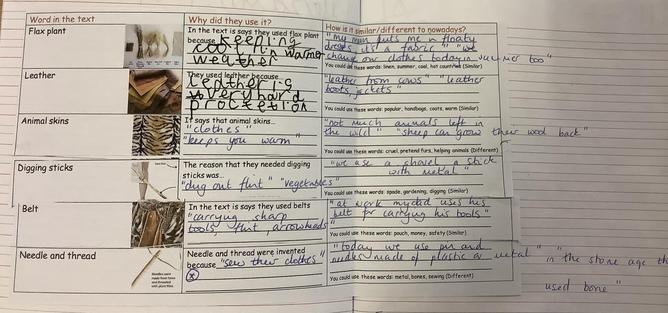 Word in the text
Why did they use it?
How is it similar/different to nowadays?
Flax plant
In the text is says they used flax plant
because keeping
cool in warmer
weather
"my mum puts me in floaty
dresses it's a fabric" "we
change our clothes today in summer too"
You could use these words: linen, summer, cool, hot countries (Similar)
Leather
They used leather because
leather is
very hard
protection
"leather from cows" "leather
boots, jackets"
You could use these words: popular, handbags, coats, warm (Similar)
Animal skins
It says that animal skins...
"clothes"
"keeps you warm"
"not much animals left in
the wild" "sheep can grow their wool back"
You could use these words: cruel, pretend furs, helping animals (Different)
Digging sticks
The reason that they needed digging
sticks was...
"dug out flint" "vegetables"
"we use a shovel a stick
with metal"
You could use these words: spade, gardening, digging (Similar)
Belt
In the text is says they used belts
"carrying sharp
tools, flint, arrowheads"
"at work my dad uses his
belt for carrying his tools"
You could use these words: pouch, money, safety (Similar)
Needle and thread
Needles were
made from bone
and threaded
with plant fibre
Needle and thread were invented
because "sew their clothes"
"today we use pin and
needles made of plastic or metal" "in the stone age they
used bone"
You could use these words: metal, bones, sewing (Different)